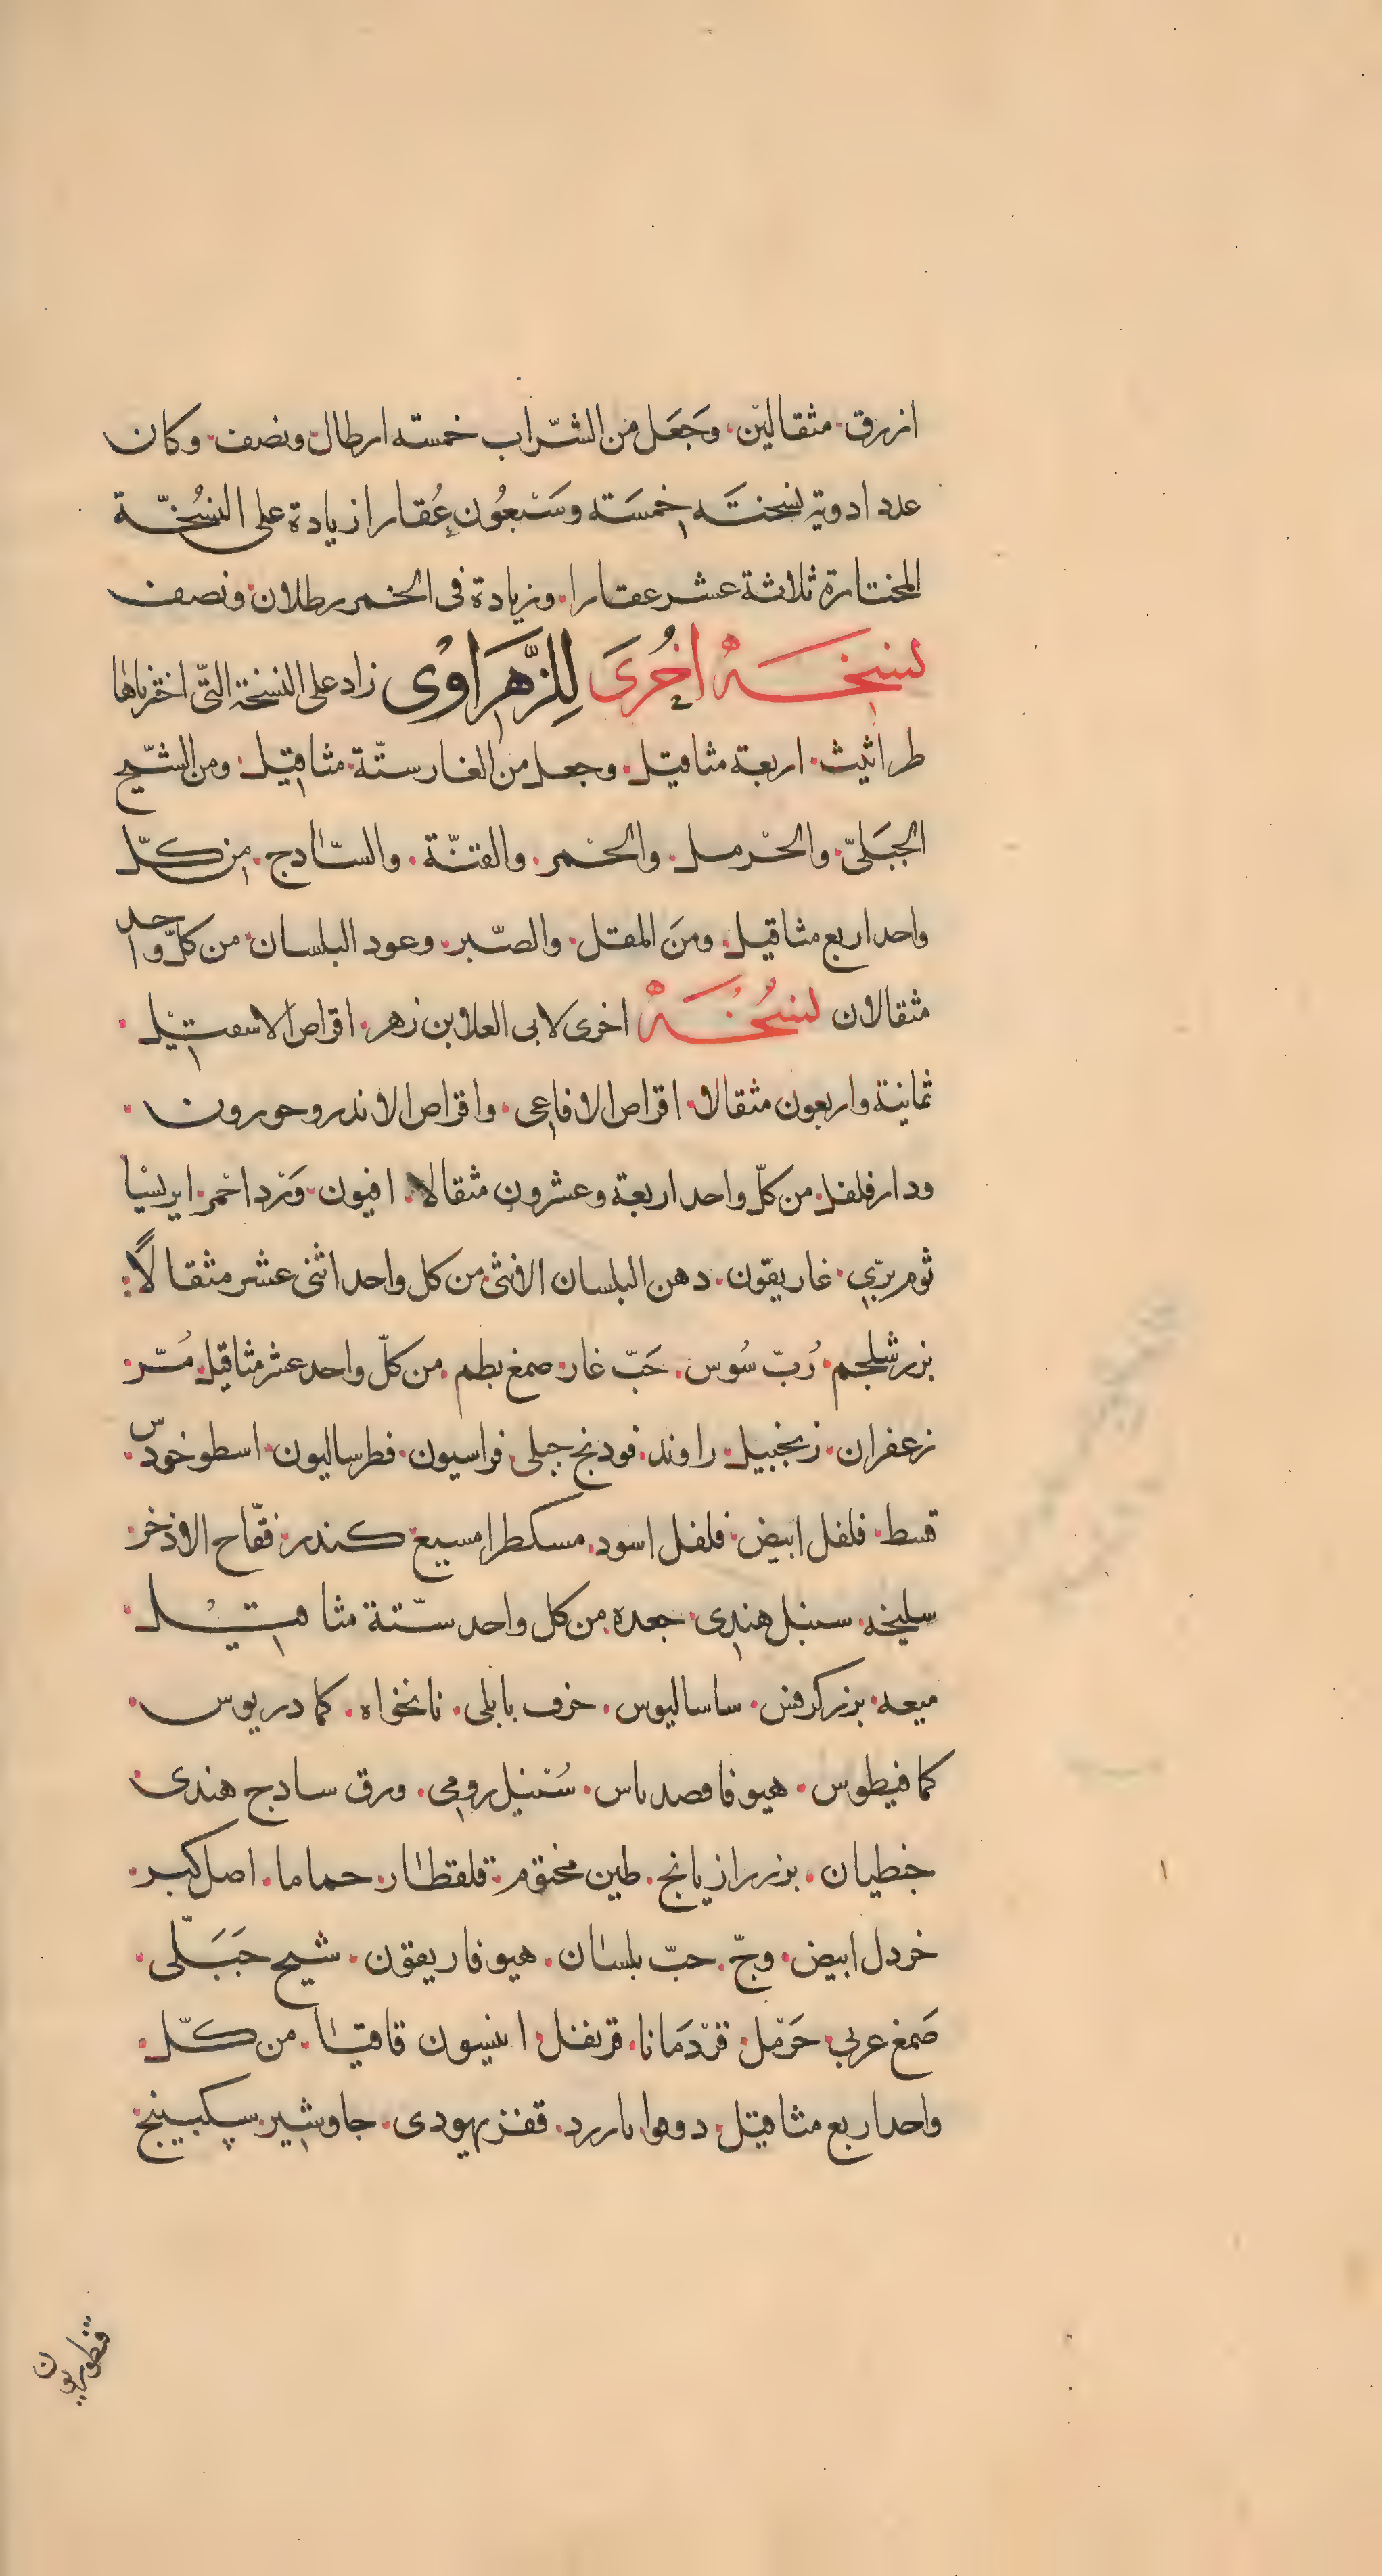 ازرق · مثقالين · وجَعَل من الشّراب خمسته ارطال · ونصف · وكان
عدد ادوية نسختَه خمسَته وسَبعُون عُقارا زيادة على النسُخّة
المختارة ثلاثة عشر عقارا · وزيادة فى الخمر رطلان · ونصف
نسخَة اخُرىَ لِلزَّهرَاوْى زاد على النسخة التّى اخترناها
طراثيث · اربعة مثاقيل · وجعل من الغار ستّة · مثاقيل · ومن الشّيح
الجبَلىّ · والحرْمل · والخمر · والقنّة · والسّادج · من كلّ
واحد اربع مثاقيل · ومنَ المقل · والصّبر · وعود البلسان · من كلّ واحد
مثقالان نسُخَة اخرى لابى العلا بن زهر · اقراص الاسقيل ·
ثمانية واربعون مثقالا · اقراص الافاعى · واقراص الاندروحورون ·
ودارفلفل · من كلّ واحد اربعة وعشرون مثقالا · افيون · وَرْد احْمر · ايرسْيا
ثوم برّي · غاريقون · دهن البلسان الافى · من كل واحد اثنى عشر مثقالاً :
بزر شلجم · رُبّ سُوس · حَبّ غار · صمغ بطم · من كلّ واحد عشر مثاقيل · مُرّ ·
زعفران · زنجبيل · راوند · فودنج جبلى · فراسيون · فطرساليون · اسطوخودس ·
قسط · فلفل ابيض · فلفل اسود · مسكطرامسيع · كندر · فقّاح الاذخر ·
سليخه · سنبل هندى · جعده · من كل واحد ستّة مثاقيل ·
ميعه · بزر كرفس · ساساليوس · حرف بابلى · نانخواه · كمادريوس ·
كمافيطوس · هيوفاقصدباس · سُنبل رومى · ورق سادج هندى ·
جنطيان · بزر رازيانج · طين مختوم · قلقطار · حماما · اصل كبر ·
خردل ابيض · وجّ · حبّ بلسان · هيوفاريقون · شيح جَبَلّى ·
صَمغ عربى · حَرْمل · قرْدمَانا · قرنفل · انيسون قاقيا · من كلّ ·
واحد اربع مثاقيل · دوقوا · باررد · قفر يهودى · جاوشير · سكبينج ·
قنطوريون